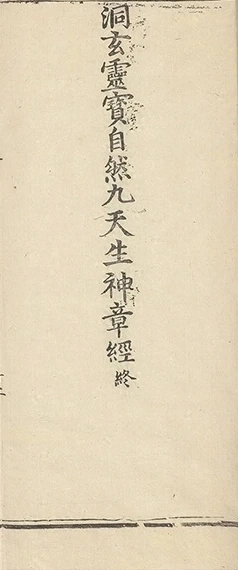 洞玄靈寳自然九天生神章經終